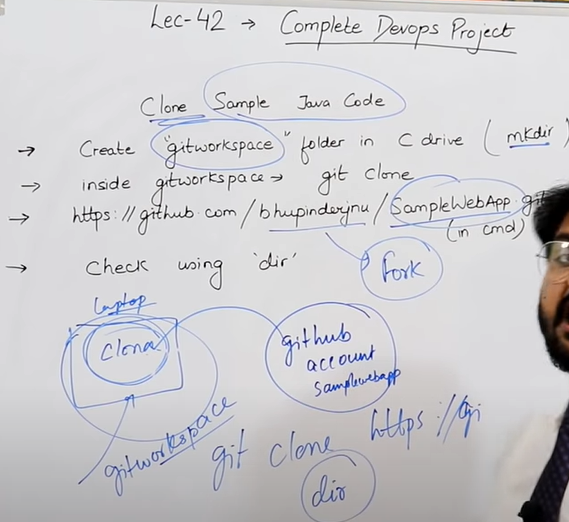 Lec-42 → Complete Devops Project
Clone Sample Java Code
→ Create "gitworkspace" folder in C drive (mkdir)
→ inside gitworkspace → git clone
→ https://github.com/bhupinderjnu/SampleWebApp.git
(in cmd)
Fork
→ Check using 'dir'
Laptop
Clone
github
account
samplewebapp
gitworkspace
git clone https://gi
dir